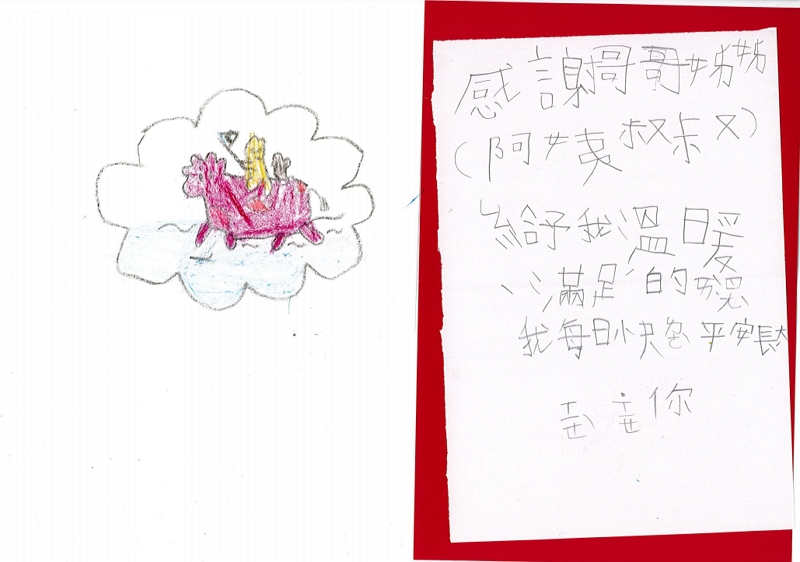 感謝哥哥姊姊
(阿姨叔叔)
給予我溫暖
心滿足的
我每日快 平安長大
你